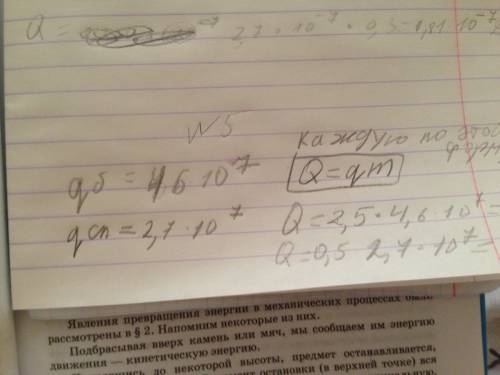 Q = 2,7 · 10⁻⁷ · 0,3 = 0,81 · 10⁻⁷
N5
каждую по этой
qб = 4,6 · 10⁷
Q = qm
qсп = 2,7 · 10⁷
Q = 2,5 · 4,6 · 10⁷ =
Q = 0,5 2,7 · 10⁷ =
Явления превращения энергии в механических процессах были
рассмотрены в § 2. Напомним некоторые из них.
Подбрасывая вверх камень или мяч, мы сообщаем им энергию
движения — кинетическую энергию.
до некоторой высоты, предмет останавливается,
остановки (в верхней точке) вся